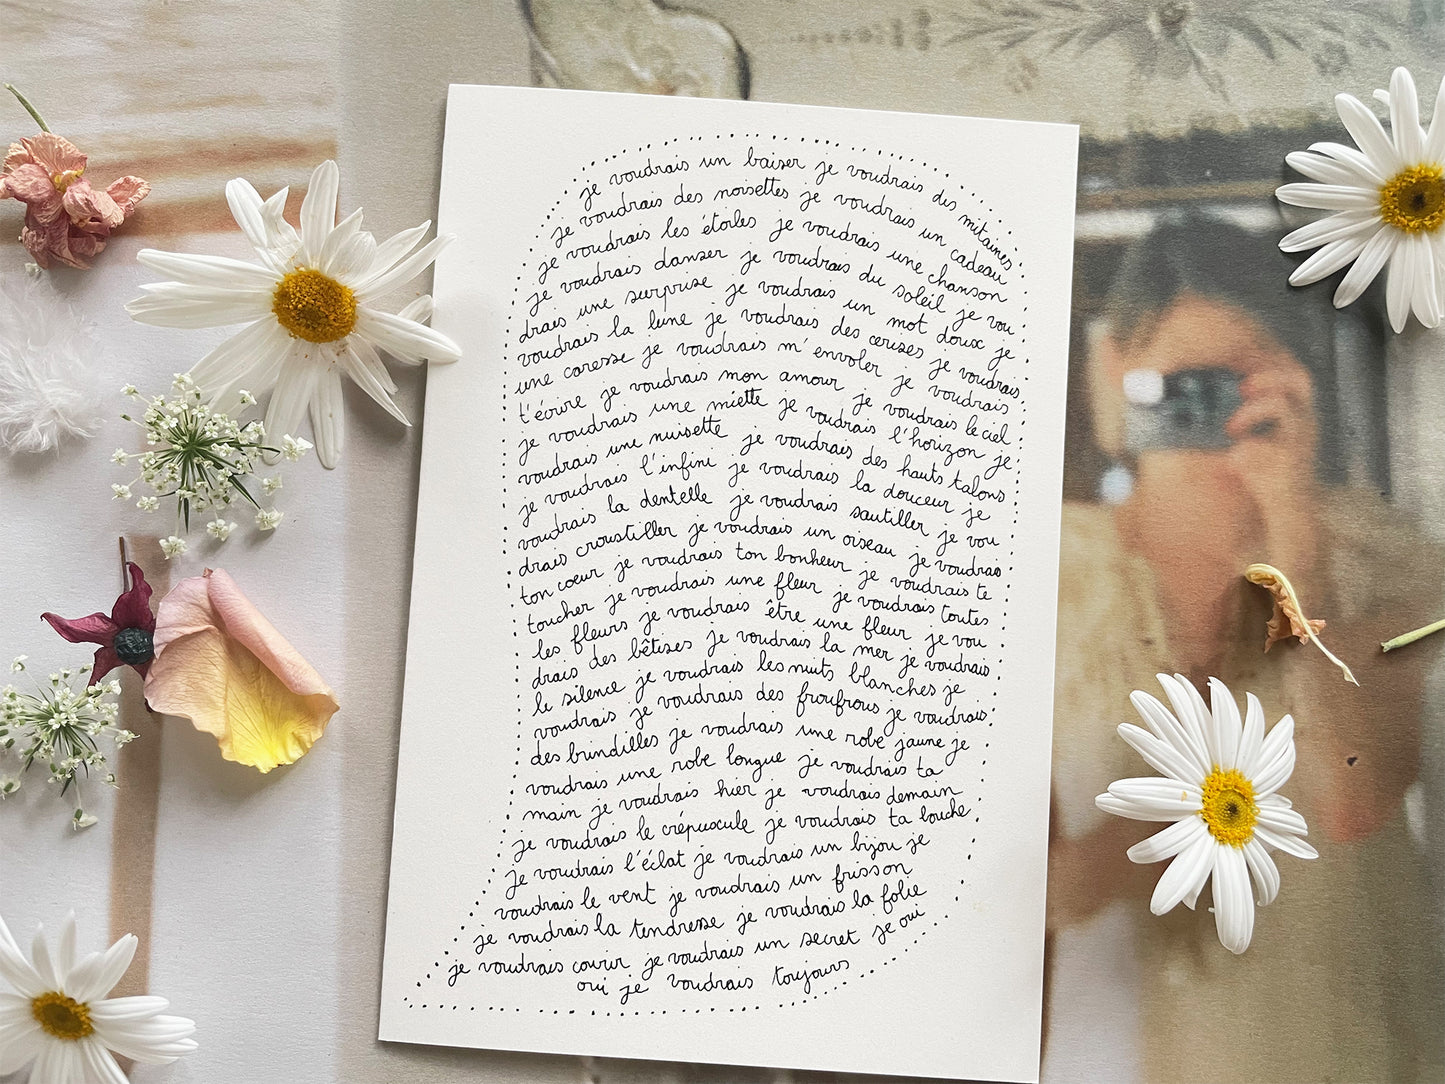 je voudrais un baiser je voudrais des mitaines
je voudrais des noisettes je voudrais un cadeau
je voudrais les étoiles je voudrais une chanson
je voudrais danser je voudrais du soleil je vou
drais une surprise je voudrais un mot doux je
voudrais la lune je voudrais des cerises je voudrais
une caresse je voudrais m'envoler je voudrais
t'écrire je voudrais mon amour je voudrais le ciel
je voudrais une miette je voudrais l'horizon je
voudrais une nuisette je voudrais des hauts talons
je voudrais l'infini je voudrais la douceur je
voudrais la dentelle je voudrais sautiller je vou
drais croustiller je voudrais un oiseau je voudrais
ton cœur je voudrais ton bonheur je voudrais te
toucher je voudrais une fleur je voudrais toutes
les fleurs je voudrais être une fleur je vou
drais des bêtises je voudrais la mer je voudrais
le silence je voudrais les nuits blanches je
voudrais je voudrais des froufrous je voudrais
des brindilles je voudrais une robe jaune je
voudrais une robe longue je voudrais ta
main je voudrais hier je voudrais demain
je voudrais le crépuscule je voudrais ta bouche
je voudrais l'éclat je voudrais un bijou je
voudrais le vent je voudrais un frisson
je voudrais la tendresse je voudrais la folie
je voudrais courir je voudrais un secret je oui
oui je voudrais toujours